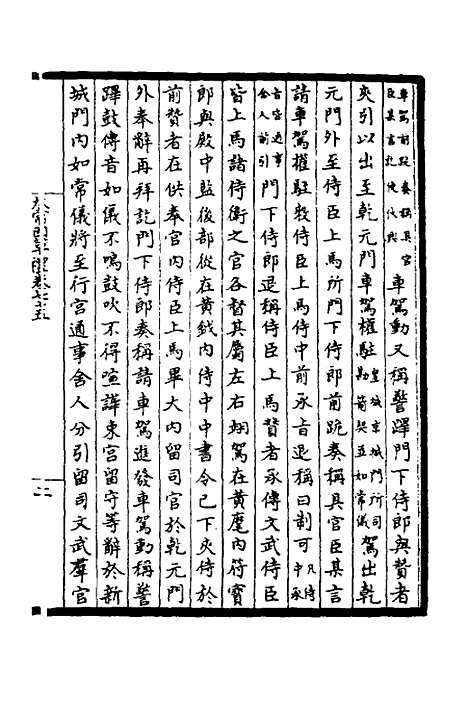 車駕前跪奏稱具官
臣某言訖俛伏興車駕動又稱警蹕門下侍郎與贊者
夾引以出至乾元門車駕權駐皇城京城門所司
勘箭契並如常儀駕出乾
元門外至侍臣上馬所門下侍郎前跪奏稱具官臣某言
請車駕權駐敕侍臣上馬侍中前承旨退稱曰制可凡侍
中承
旨皆通事
舍人前引門下侍郎退稱侍臣上馬贊者承傳文武侍臣
皆上馬諸侍衛之官各督其屬左右翊駕在黃麾內符寶
郎與殿中監後部從在黃鉞內侍中中書令已下夾侍於
前贊者在供奉官內侍臣上馬畢大內留司官於乾元門
外奉辭再拜訖門下侍郎奏稱請車駕進發車駕動稱警
蹕鼓傳音如儀不鳴鼓吹不得喧譁東宮留守等辭於新
城門內如常儀將至行宮通事舍人分引留司文武羣官
太常因革禮卷七十五
二